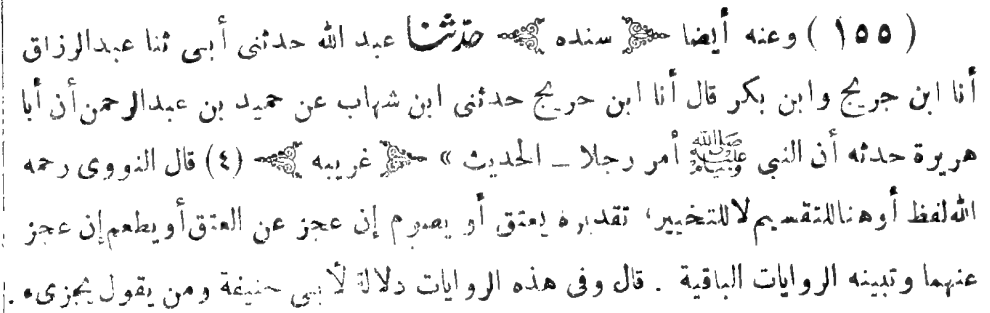 ( ١٥٥ ) وعنه أيضا ﴿ سنده ﴾ حدّثنا عبد الله حدثنى أبى ثنا عبدالرزاق
أنا ابن جريج وابن بكر قال أنا ابن جريج حدثنى ابن شهاب عن حميد بن عبدالرحمن أن أبا
هريرة حدثه أن النبى ﷺ أمر رجلا ــ الحديث » ﴿ غريبه ﴾ (٤) قال النووى رحمه
الله لفظ أو هنا للتقسيم لا للتخيير، تقديره يعتق أو يصوم إن عجز عن العتق أو يطعم إن عجز
عنهما وتبينه الروايات الباقية . قال وفى هذه الروايات دلالة لأبى حنيفة ومن يقول يجزىء